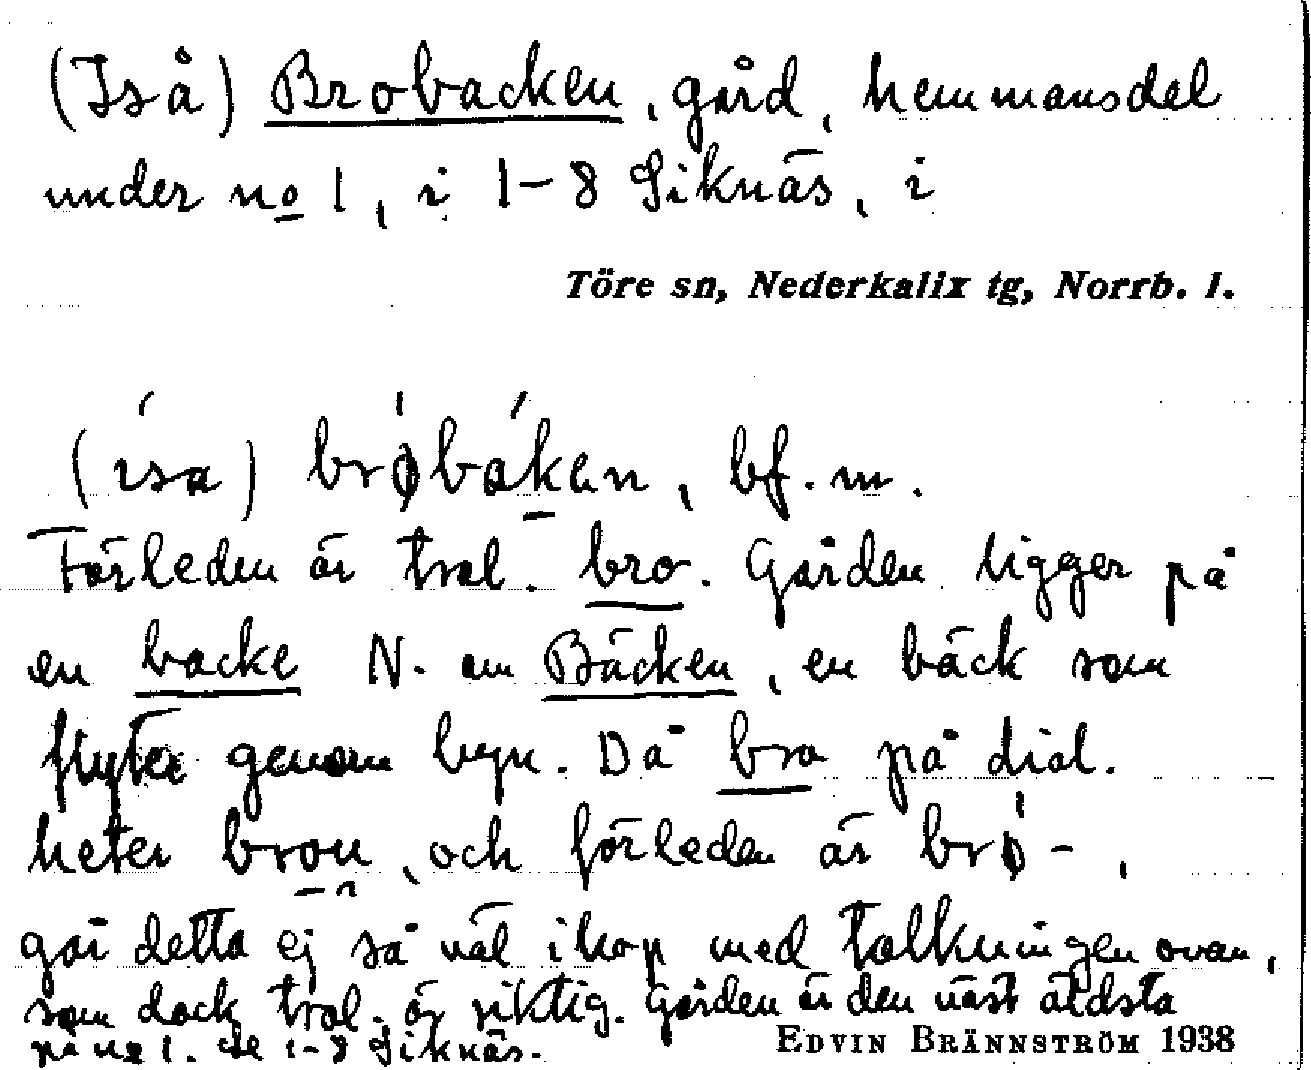 (Iså) Brobacken, gård, hemmansdel
under no 1, i 1-8 Siknäs, i
Töre sn, Nederkalix tg, Norrb. l.
(ísa) bróbákan, bf. m.
Förleden är trol. bro. Gården ligger på
en backe N. om Bäcken, en bäck som
flyter genom byn. Då bro på dial.
heter brou, och förleden är bró-,
går detta ej så väl ihop med tolkningen ovan,
som dock trol. är riktig. Gården är den näst äldsta
på no 1. 1-8 Siknäs.
EDVIN BRÄNNSTRÖM 1938